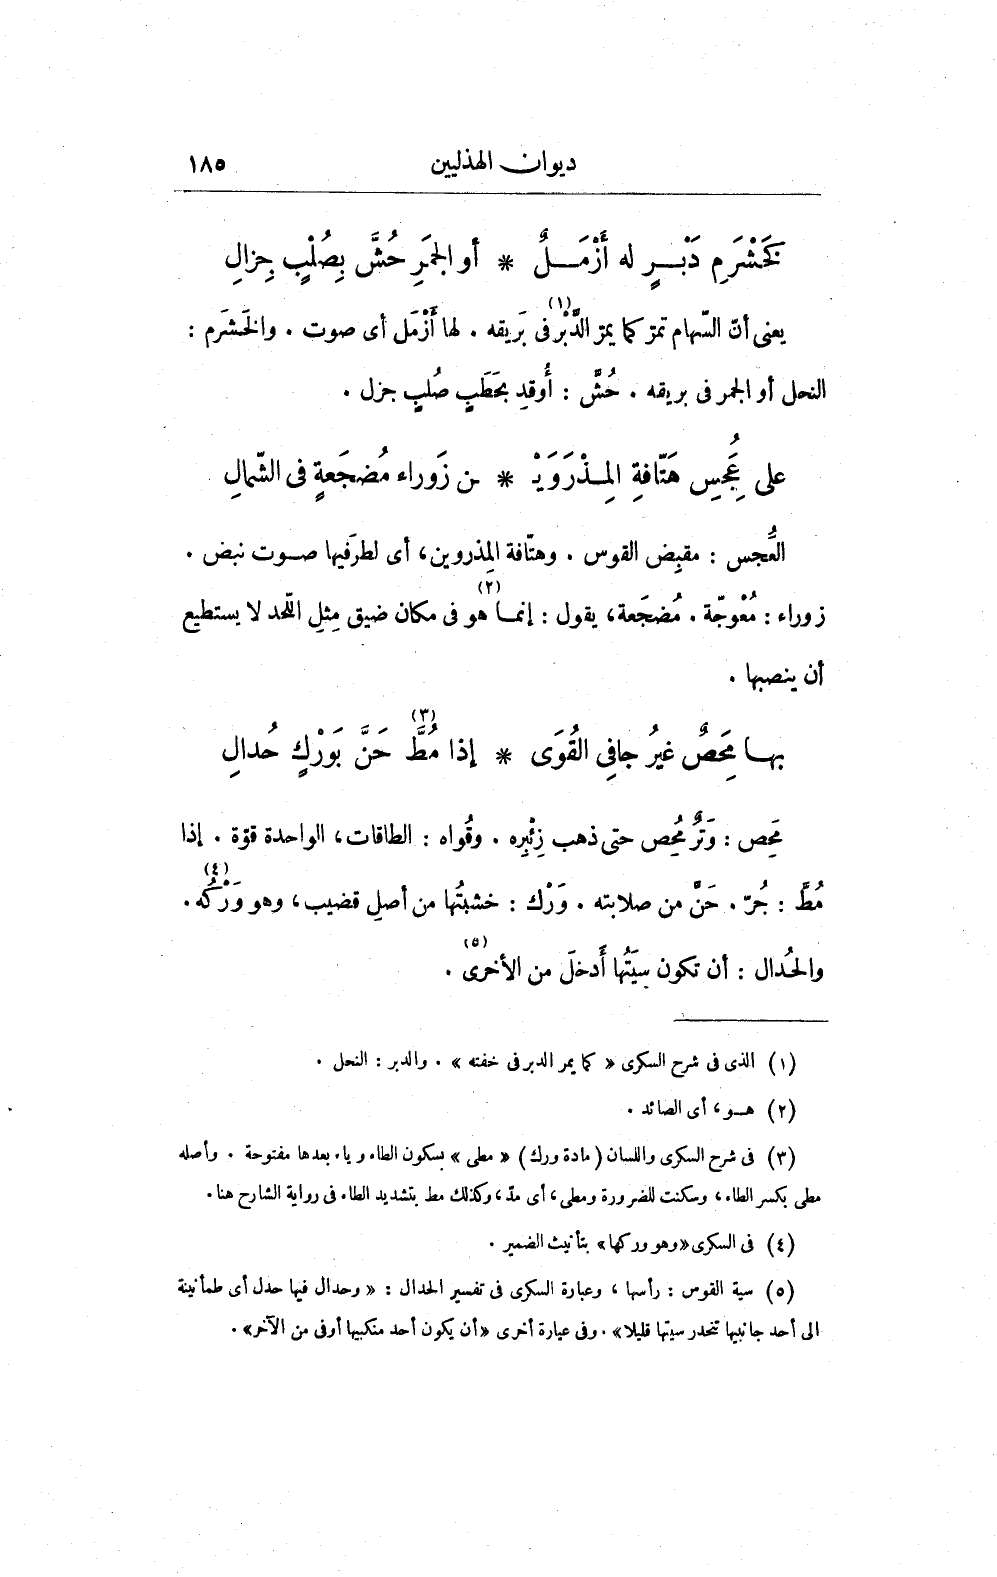 ديوان الهذليين ١٨٥
كَخَشْرَمِ دَبْرٍ له أَزْمَلٌ * أو الجمَرِ حُشَّ بِصُلْبٍ جِزالِ
يعنى أنّ السّهام تمرّ كما يمرّ الدَّبْر (١) فى بَرِيقه . لها أَزْمَل أى صوت . والخَشرَم :
النحل أو الجمر فى بريقه . حُشَّ : أُوقد بحَطَبٍ صُلبٍ جزل .
على عُِجْسِ هَتّافةِ المِذْرَوَيْـ * ـن زَوراء مُضجَعةٍ فى الشّمالِ
العُجس : مقبِض القوس . وهتّافة المِذروين، أى لطرَفيها صوت نبض .
زوراء : مُعْوجّة . مُضجَعة، يقول : إنما (٢) هو فى مكان ضيق مِثلِ اللّحد لا يستطيع
أن ينصبها .
بها مَحِصٌ غيرُ جافِى القُوَى * إذا مُطَّ (٣) حَنَّ بَوَرْكٍ حُدالِ
مَحِص : وَتَرٌ مُحِص حتى ذهب زِئْبِره . وقُواه : الطاقات، الواحدة قوّة . إذا
مُطَّ : جُرّ . حَنَّ من صلابته . وَرْك : خشبتُها من أصلِ قضيب، وهو وَرْكُه (٤) .
والحُدال : أن تكون سِيَتُها (٥) أَدخلَ من الأخرى .
(١) الذى فى شرح السكرى « كما يمر الدبر فى خفته » . والدبر : النحل .
(٢) هو، أى الصائد .
(٣) فى شرح السكرى واللسان (مادة ورك) « مطى » بسكون الطاء وياء بعدها مفتوحة . وأصله
مطى بكسر الطاء، وسكنت للضرورة ومطى، أى مدّ، وكذلك مط بتشديد الطاء فى رواية الشارح هنا .
(٤) فى السكرى «وهو وركها» بتأنيث الضمير .
(٥) سية القوس : رأسها، وعبارة السكرى فى تفسير الحدال : « وحدال فيها حدل أى طمأنينة
الى أحد جانبيها تنحدر سيتها قليلا» . وفى عبارة أخرى «أن يكون أحد منكبيها أوفى من الآخر» .